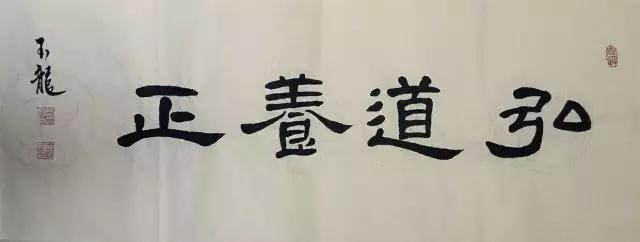 弘道養正
玉龍